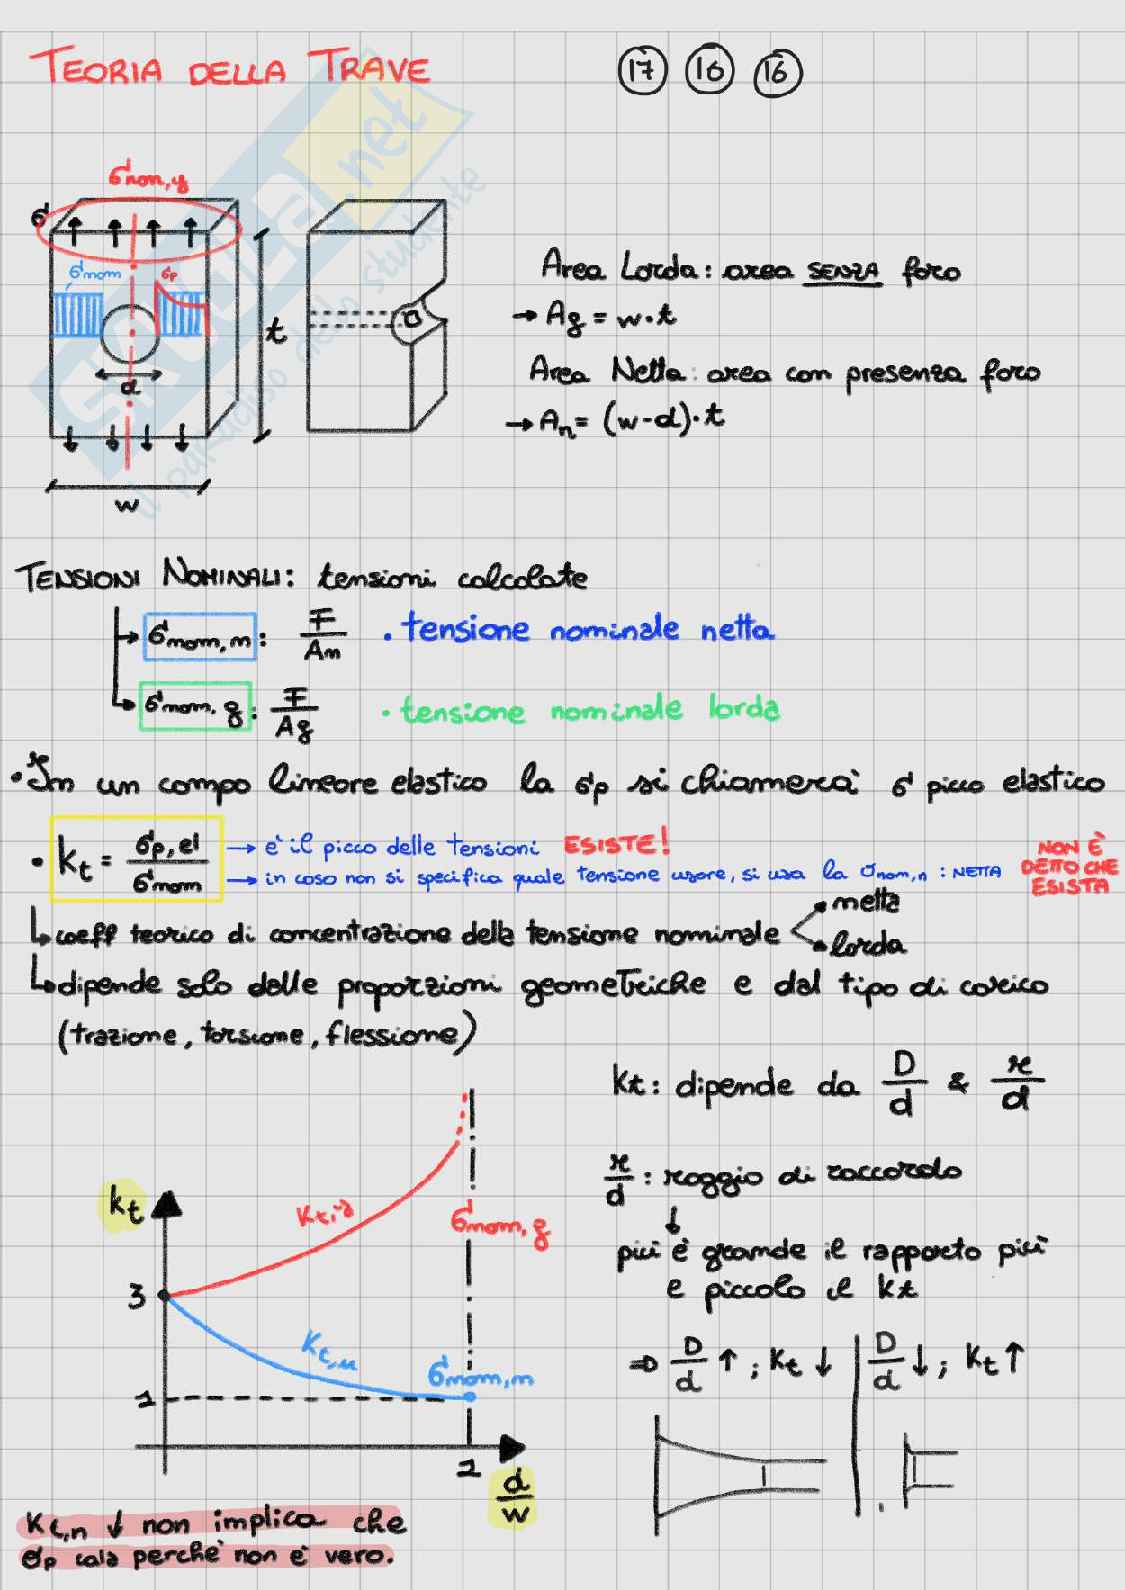 TEORIA DELLA TRAVE
17 16 16
σnom,g
σ
σnom
σp
d
t
w
Area Lorda: area SENZA foro
→ Ag = w·t
Area Netta: area con presenza foro
→ An = (w-d)·t
TENSIONI NOMINALI: tensioni calcolate
→ σnom,n : F/An • tensione nominale netta
→ σnom,g : F/Ag • tensione nominale lorda
• In un campo lineare elastico la σp si chiamerà σ picco elastico
• Kt = σp,el/σnom
→ è il picco delle tensioni ESISTE!
→ in caso non si specifica quale tensione usare, si usa la σnom,n : NETTA
NON È DETTO CHE ESISTA
↳ coeff teorico di concentrazione della tensione nominale
• netta
• lorda
↳ dipende solo dalle proporzioni geometriche e dal tipo di carico
(trazione, torsione, flessione)
Kt: dipende da D/d & r/d
r/d : raggio di raccordo
↓
più è grande il rapporto più
e piccolo il kt
⇒ D/d ↑ ; Kt ↓ | D/d ↓ ; Kt ↑
kt
3
1
Kt,g
σnom,g
Kt,n
σnom,n
1
d/w
Kt,n ↓ non implica che
σp cala perchè non è vero.
SKUOLA.net
il paradiso dello studente